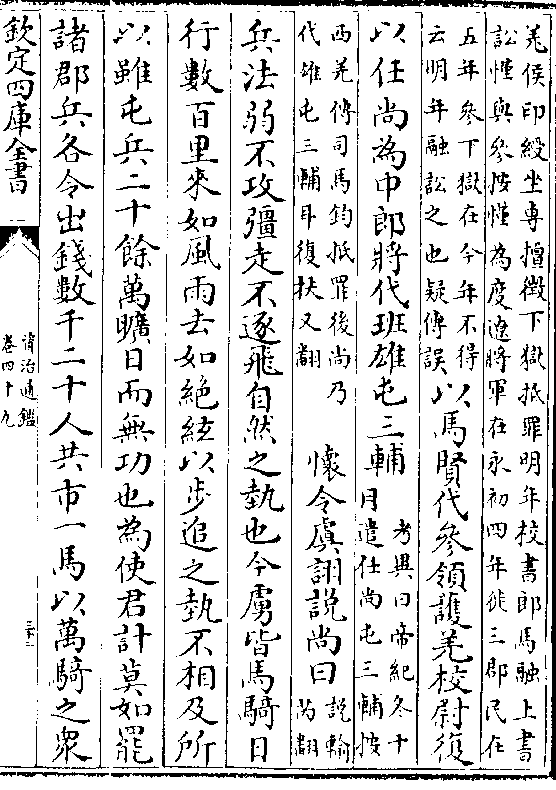 羌侯印綬坐專擅徵下獄抵罪明年校書郎馬融上書
訟慬與參按慬為度遼將軍在永初四年徙三郡民在
五年參下獄在今年不得
云明年融訟之也疑傳誤
以馬賢代參領護羌校尉復
以任尚為中郎將代班雄屯三輔
考異曰帝紀冬十
月遣任尚屯三輔按
西羌傳司馬鈞抵罪後尚乃
代雄屯三輔耳復扶又翻
懷令虞詡說尚曰
說輸
芮翻
兵法弱不攻彊走不逐飛自然之埶也今虜皆馬騎日
行數百里來如風雨去如絕絃以步追之埶不相及所
以雖屯兵二十餘萬曠日而無功也為使君計莫如罷
諸郡兵各令出錢數千二十人共市一馬以萬騎之衆
欽定四庫全書
資治通鑑
卷四十九